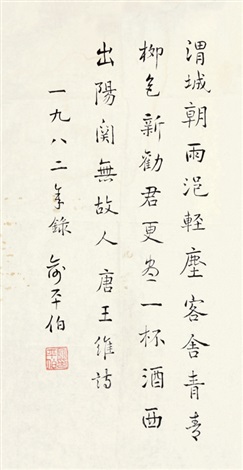 渭城朝雨浥輕塵客舍青青
柳色新勸君更盡一杯酒西
出陽關無故人 唐王維詩
一九八二年錄 俞平伯